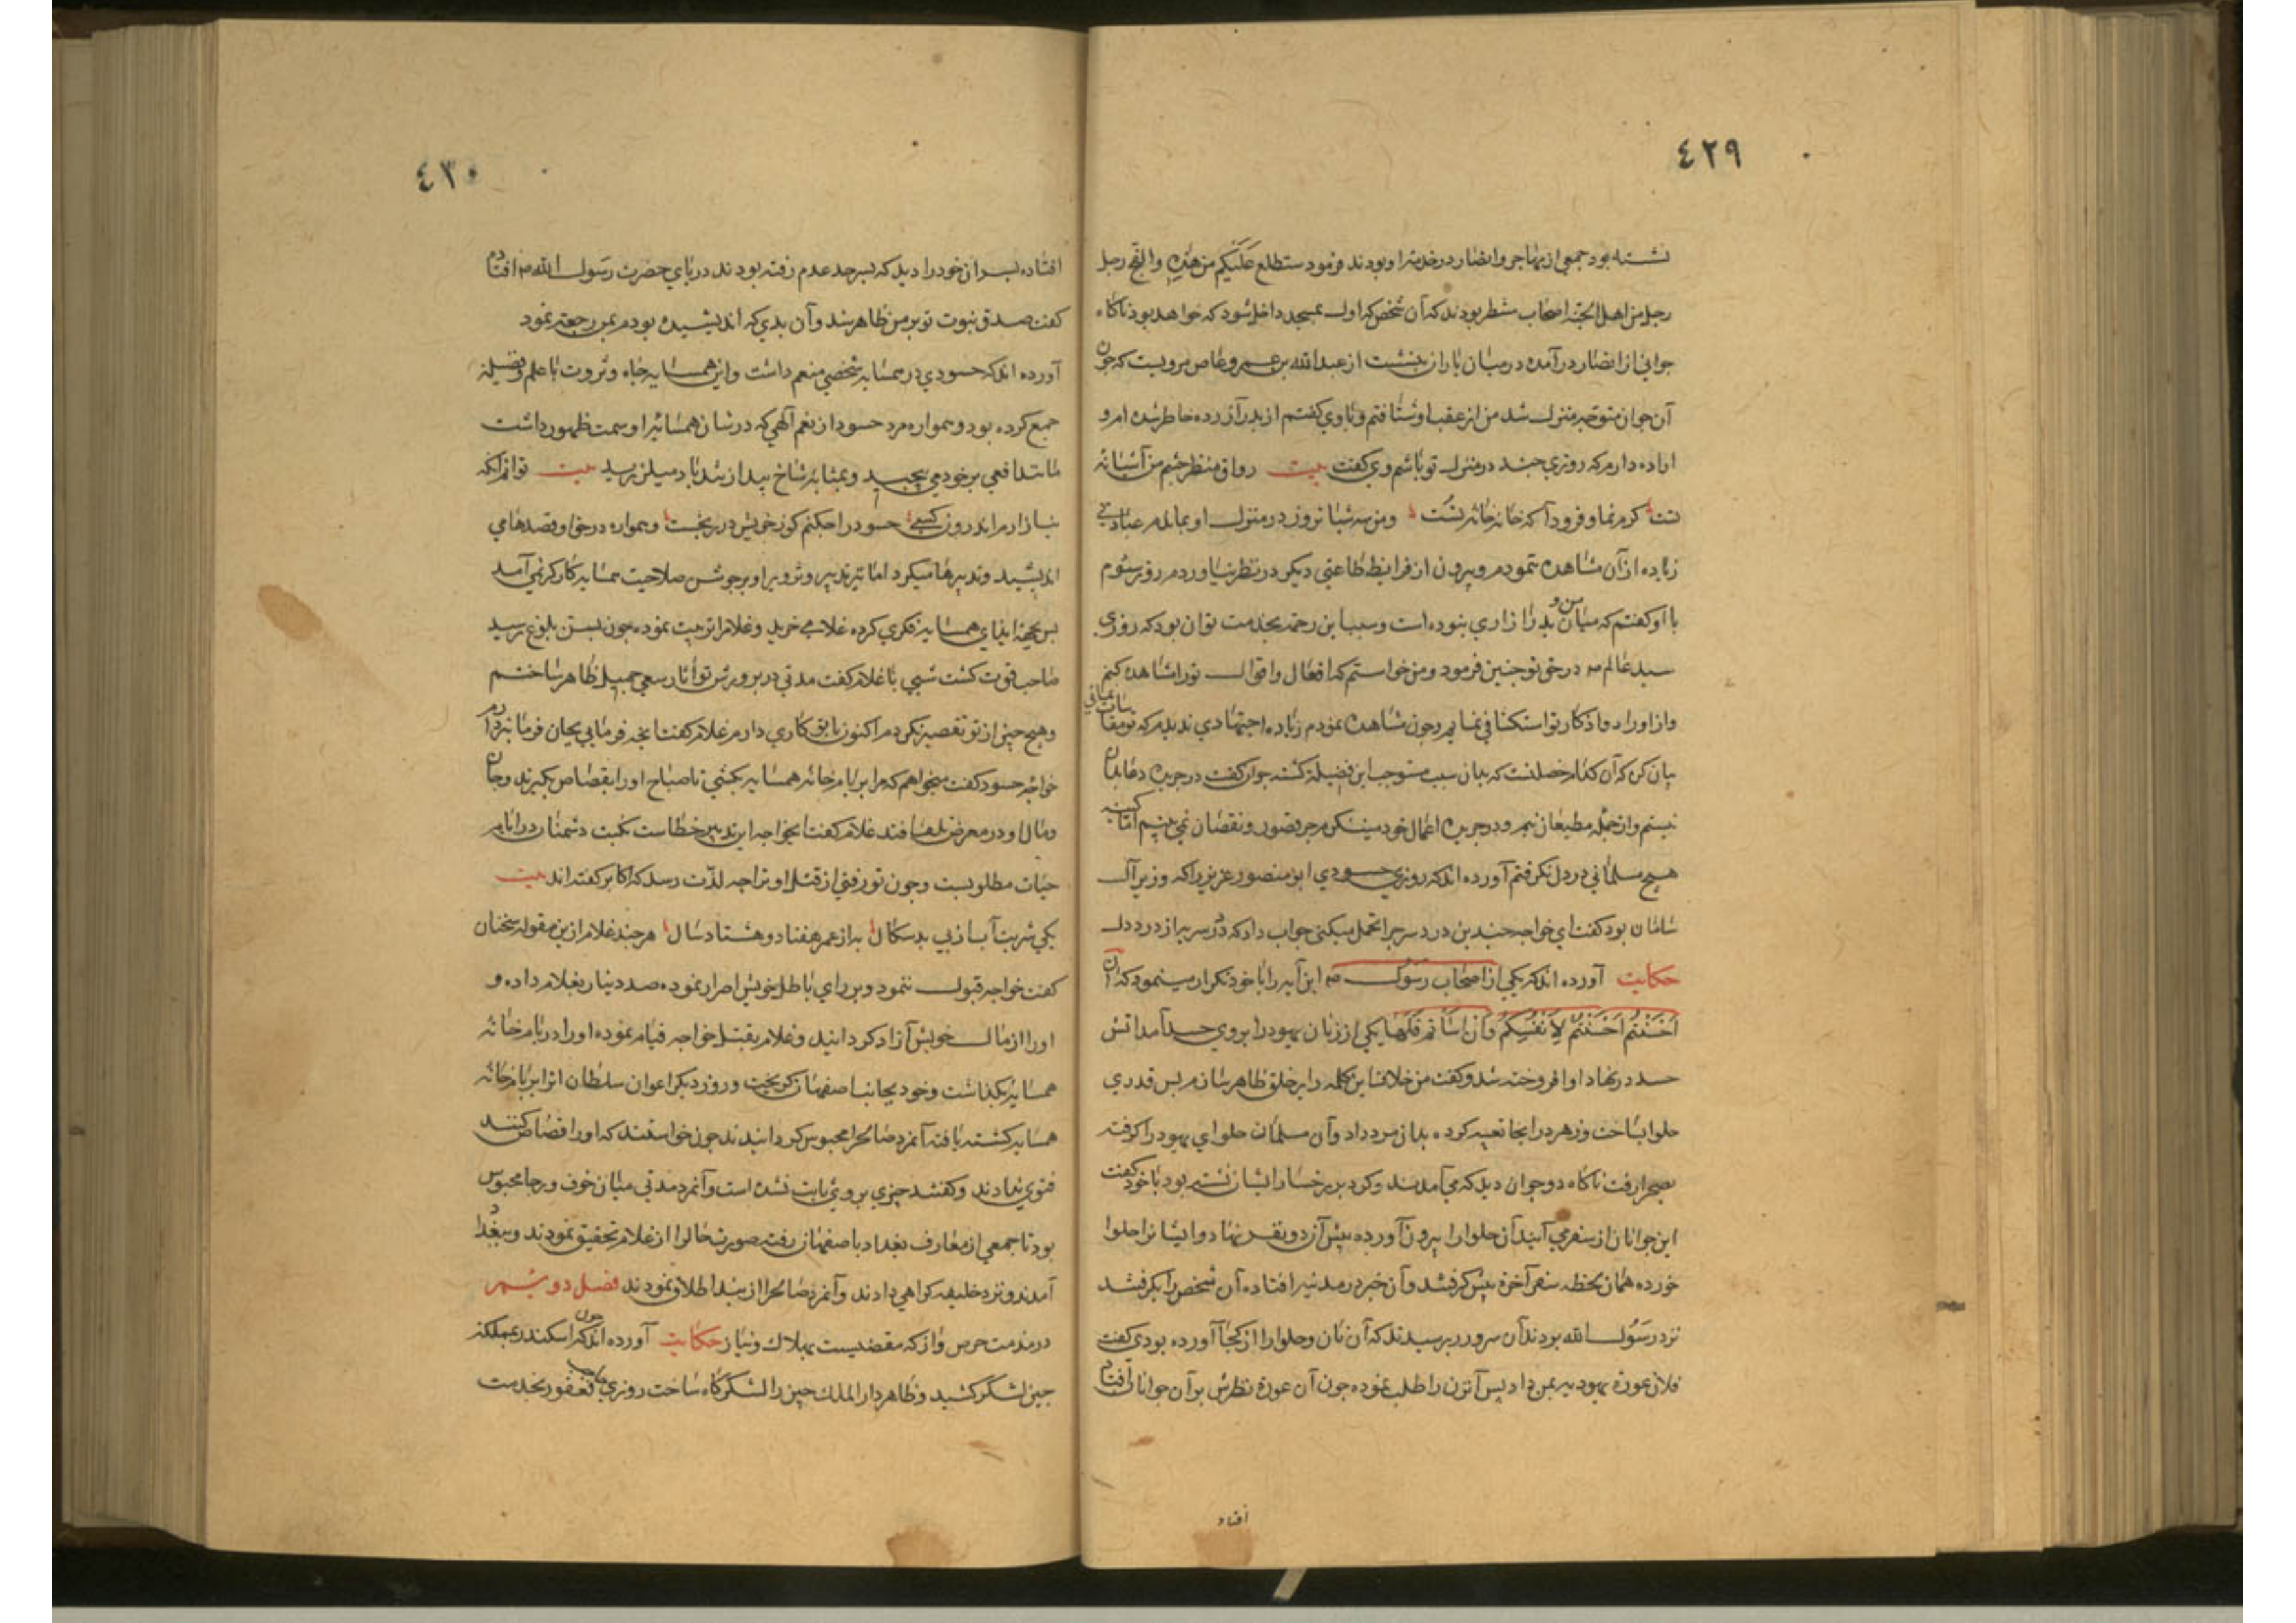 ٤٢٩
نشسته بود جمعی از مهاجر و انصار در خدمت او بودند فرمود ستطلع علیکم من هذه الفج رجل
رجل من اهل الجنه اصحاب منتظر بودند که آن شخص که اول بمسجد داخل شود که خواهد بود ناکاه
جوانی از انصار در آمده در میان یاران بنشست از عبد الله بن عمرو عاص مرویست که جون
آن جوان متوجه منزل شد من از عقب او شتافتم و با وی کفتم از پدر آزرده خاطر شده ام و
اراده دارم که روزی چند در منزل تو باشم وی کفت بیت رواق منظر چشم من آشیانه
تست کرم نما و فرود آ که خانه خانه تست و من سه شبانروز در منزل او بمانده عبادتی
زیاده از آن مشاهده ننمودم و بیرون از فرایض طاعتی دیکر در نظر نیاوردم روز سیوم
با او کفتم که میان من و پدر آزاری نبوده است و سبب این زحمت بخدمت تو آن بود که روزی
سید عالم ص در حق تو چنین فرمود و من خواستم که افعال و اقوال تو را مشاهده کنم
و از اوراد و اذکار تو استکشافی نمایم و جون مشاهده نمودم زیاده اجتهادی ندیدم که تو
بیان کن که آن کدام خصلتست که بدان سبب مستوجب این فضیلة کشته جوان کفت در جریده عابدان
نیستم و از جمله مطیعان نیم و در جریده اعمال خود میبینم که جز قصور و نقصان نمی بینم اما کینه
هیچ مسلمانی در دل نکرفتم آورده اند که روزی حسودی ابو منصور عزیز را که وزیر آل
سامان بود کفت ای خواجه چندین درد سر چرا تحمل میکنی جواب داد که درد سر به از درد دل
حکایت آورده اند که یکی از اصحاب رسول ص این آیه را با خود تکرار مینمود که ان
احسنتم احسنتم لانفسکم و ان اساتم فلها یکی از زنان یهود را بر وی حسد آمد آتش
حسد در نهاد او افروخته شد و کفت من خلاف این کلمه را بر خلق ظاهر سازم پس قدری
حلوا بساخت و زهر در انجا تعبیه کرده بدان مرد داد و آن مسلمان حلوای یهود را کرفته
بصحرا رفت ناکاه دو جوان دید که می آمدند و کرد بر رخسار ایشان نشسته بود با خود کفت
این جوانان از سفر می آیند آن حلوا را بیرون آورده پیش آن دو نفر نهاد و ایشان حلوا
خورده همان لحظه سفر آخرة پیش کرفتند و آن خبر در مدینه افتاده آن شخص را بکرفتند
نزد رسول الله بردند آن سرور پرسیدند که آن نان و حلوا را از کجا آورده بودی کفت
فلان عورة یهودیه بمن داد پس آن زن را طلب نموده جون آن عورة نظرش بر آن جوانان افتاد
افتاد
٤٣٠
افتاده پسران خود را دید که بسرحد عدم رفته بودند در پای حضرت رسول الله ص افتاد
کفت صدق نبوت تو بر من ظاهر شد و آن بدی که اندیشیده بودم بمن رجعت نمود
آورده اند که حسودی در همسایه شخصی منعم داشت و این همسایه جاه و ثروت با علم و فضیلة
جمع کرده بود و همواره مرد حسود از نعم الهی که در شان همسایه او سمت ظهور داشت
مانند افعی بر خود می پیچید و بمثابه شاخ بید از تند باد میلرزید بیت توانم آنکه
نیازارم اندرون کسی حسود را چکنم کو ز خویش در رنجست و همواره در حق او قصدها می
اندیشید و تدبیرها میکرد اما تیر تدبیر و تزویر او بر جوشن صلاحیت همسایه کارکر نمی آمد
پس بجهة ایذای همسایه فکری کرده غلامی خرید و غلام را تربیت نموده جون بسن بلوغ رسید
صاحب قوت کشت شبی با غلام کفت مدتی در پرورش تو آثار سعی جمیل ظاهر ساختم
و هیچ چیز از تو تقصیر نکردم اکنون با تو کاری دارم غلام کفت آنچه فرمایی بجان فرمان بردارم
خواجه حسود کفت میخواهم که مرا بر بام خانه همسایه بکشی تا صباح او را بقصاص بکیرند و جان
و مال او در معرض تلف افتد غلام کفت ایخواجه این تدبیر خطاست نکبت دشمنان در ایام
حیات مطلوبست و جون تو رفتی از قتل او ترا چه لذّت رسد که اکابر کفته اند بیت
یکی شربت آب از پی بدسکال به از عمر هفتاد و هشتاد سال هر چند غلام ازین مقوله سخنان
کفت خواجه قبول ننمود و بر رای باطل خویش اصرار نموده صد دینار بغلام داده و
او را از مال خویش آزاد کردانید و غلام بقتل خواجه قیام نموده او را در بام خانه
همسایه بکذاشت و خود بجانب اصفهان کریخت و روز دیکر اعوان سلطان او را بر بام خانه
همسایه کشته یافته آنمرد صالح را محبوس کردانیدند جون خواستند که او را قصاص کنند
فتوی ندادند و کفتند چیزی بر وی ثابت نشده است و آنمرد مدتی میان خوف و رجا محبوس
بود تا جمعی از معارف بغداد باصفهان رفته صورت حال را از غلام تحقیق نمودند و ببغداد
آمدند و نزد خلیفه کواهی دادند و آنمرد صالح را از بند اطلاق نمودند فصل دوسیم
در مذمت حرص و آز که مفضیست بهلاک و نیاز حکایت آورده اند که جون اسکندر بمملکت
چین لشکر کشید و ظاهر دار الملک چین را لشکرکاه ساخت روزی حاجب فغفور بخدمت